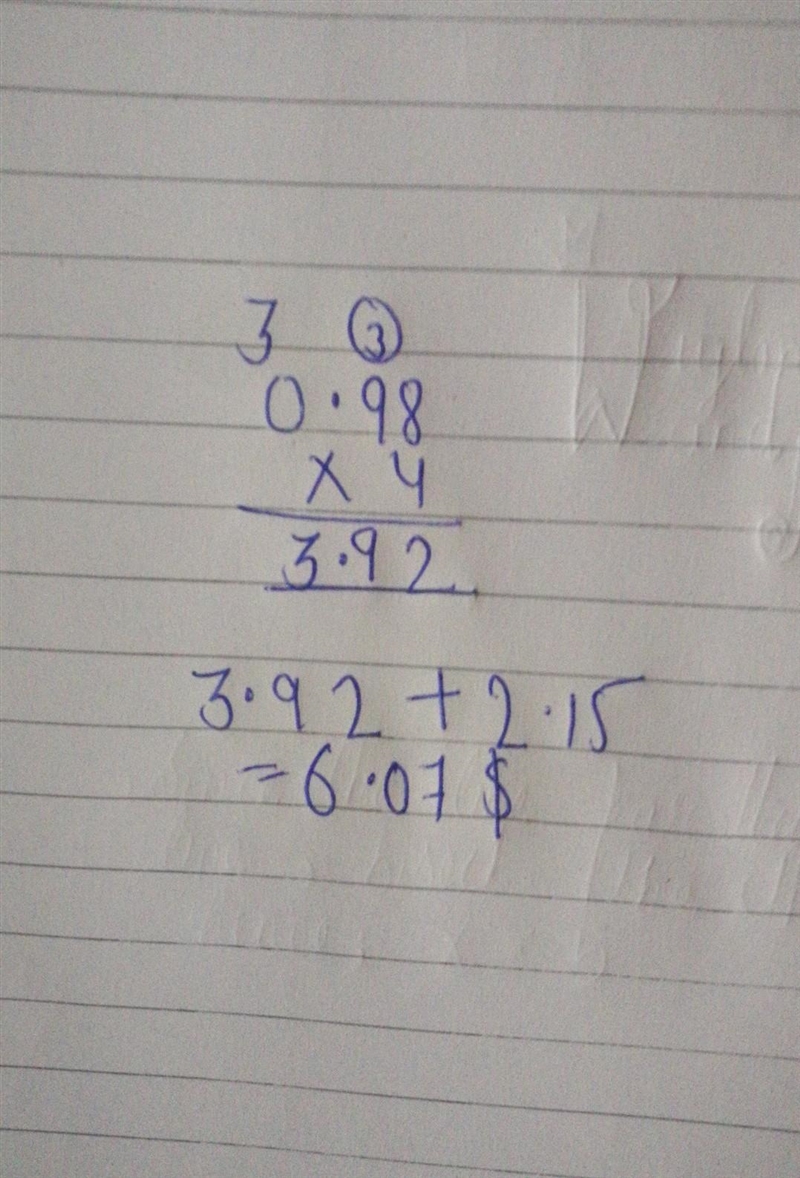 3 3
0.98
x 4
3.92
3.92 + 2.15
= 6.07 $